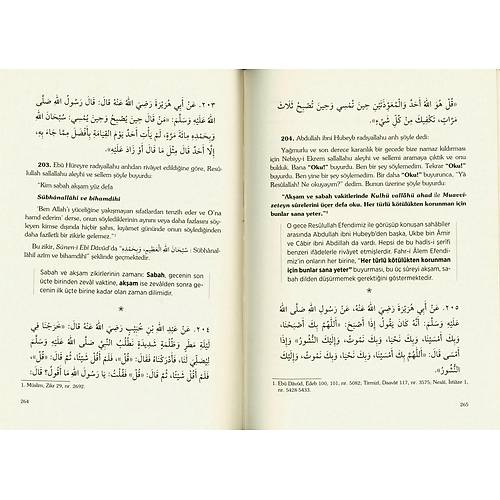 ٢٠٣. عَنْ أَبِي هُرَيْرَةَ رَضِيَ اللهُ عَنْهُ قَالَ: قَالَ رَسُولُ اللهِ صَلَّى
اللهُ عَلَيْهِ وَسَلَّمَ: «مَنْ قَالَ حِينَ يُصْبِحُ وَحِينَ يُمْسِي: سُبْحَانَ اللهِ
وَبِحَمْدِهِ مِائَةَ مَرَّةٍ، لَمْ يَأْتِ أَحَدٌ يَوْمَ الْقِيَامَةِ بِأَفْضَلَ مِمَّا جَاءَ بِهِ،
إِلَّا أَحَدٌ قَالَ مِثْلَ مَا قَالَ أَوْ زَادَ عَلَيْهِ».
203. Ebû Hüreyre radıyallahu anhdan rivâyet edildiğine göre, Resû-
lullah sallallahu aleyhi ve sellem şöyle buyurdu:
"Kim sabah akşam yüz defa
Sübhânallâhi ve bihamdihi
'Ben Allah'ı yüceliğine yakışmayan sıfatlardan tenzih eder ve O'na
hamd ederim' derse, onun söylediklerinin aynını veya daha fazlasını söy-
leyen kimse dışında hiçbir şahıs, kıyamet gününde onun söylediğinden
daha faziletli bir zikirle gelemez."¹
Bu zikir, Sünen-i Ebî Dâvûd'da "سُبْحَانَ اللهِ الْعَظِيمِ وَبِحَمْدِهِ: Sübhânal-
lâhil azîm ve bihamdihî" şeklinde geçmektedir.
Sabah ve akşam zikirlerinin zamanı: Sabah, gecenin son
üçte birinden zeval vaktine, akşam ise zevâlden sonra ge-
cenin ilk üçte birine kadar olan zaman dilimidir.
*
٢٠٤. عَنْ عَبْدِ اللهِ بْنِ خُبَيْبٍ رَضِيَ اللهُ عَنْهُ قَالَ: خَرَجْنَا فِي
لَيْلَةِ مَطَرٍ وَظُلْمَةٍ شَدِيدَةٍ نَطْلُبُ النَّبِيَّ صَلَّى اللهُ عَلَيْهِ وَسَلَّمَ
لِيُصَلِّيَ لَنَا، فَأَدْرَكْنَاهُ فَقَالَ: «قُلْ»، فَلَمْ أَقُلْ شَيْئًا، ثُمَّ قَالَ: «قُلْ»،
فَلَمْ أَقُلْ شَيْئًا، ثُمَّ قَالَ: «قُلْ» فَقُلْتُ: يَا رَسُولَ اللهِ مَا أَقُولُ؟ قَالَ:
1. Müslim, Zikr 29, nr. 2692.
264
«قُلْ هُوَ اللهُ أَحَدٌ وَالْمُعَوِّذَتَيْنِ حِينَ تُمْسِي وَحِينَ تُصْبِحُ ثَلَاثَ
مَرَّاتٍ، تَكْفِيكَ مِنْ كُلِّ شَيْءٍ».
204. Abdullah ibni Hubeyb radıyallahu anh şöyle dedi:
Yağmurlu ve son derece karanlık bir gecede bize namaz kıldırması
için Nebiyy-i Ekrem sallallahu aleyhi ve sellemi aramaya çıktık ve onu
bulduk. Bana "Oku!" buyurdu. Ben bir şey söylemedim. Tekrar "Oku!"
buyurdu. Ben yine bir şey söylemedim. Bir daha "Oku!" buyurunca: "Yâ
Resûlallah! Ne okuyayım?" dedim. Bunun üzerine şöyle buyurdu:
"Akşam ve sabah vakitlerinde Kulhü vallâhü ahad ile Muavvi-
zeteyn sûrelerini üçer defa oku. Her türlü kötülükten korunman için
bunlar sana yeter."¹
O gece Resûlullah Efendimiz ile görüşüp konuşan sahâbîler
arasında Abdullah ibni Hubeyb'den başka, Ukbe ibni Âmir
ve Câbir ibni Abdullah da vardı. Hepsi de bu hadîs-i şerifi
benzeri ifâdelerle rivâyet etmişlerdir. Fahr-i Âlem Efendi-
miz'in onların her birine, "Her türlü kötülükten korunman
için bunlar sana yeter" buyurması, bu üç sûreyi akşam, sa-
bah dilden düşürmemek gerektiğini göstermektedir.
*
٢٠٥. عَنْ أَبِي هُرَيْرَةَ رَضِيَ اللهُ عَنْهُ، عَنْ رَسُولِ اللهِ صَلَّى اللهُ
عَلَيْهِ وَسَلَّمَ: أَنَّهُ كَانَ يَقُولُ إِذَا أَصْبَحَ: «اَللّٰهُمَّ بِكَ أَصْبَحْنَا،
وَبِكَ أَمْسَيْنَا، وَبِكَ نَحْيَا، وَبِكَ نَمُوتُ، وَإِلَيْكَ النُّشُورُ» وَإِذَا
أَمْسَى قَالَ: «اَللّٰهُمَّ بِكَ أَمْسَيْنَا، وَبِكَ نَحْيَا، وَبِكَ نَمُوتُ، وَإِلَيْكَ
النُّشُورُ».
1. Ebû Dâvûd, Edeb 100, 101, nr. 5082; Tirmizî, Daavât 117, nr. 3575; Nesâî, İstiâze 1,
nr. 5428-5433.
265